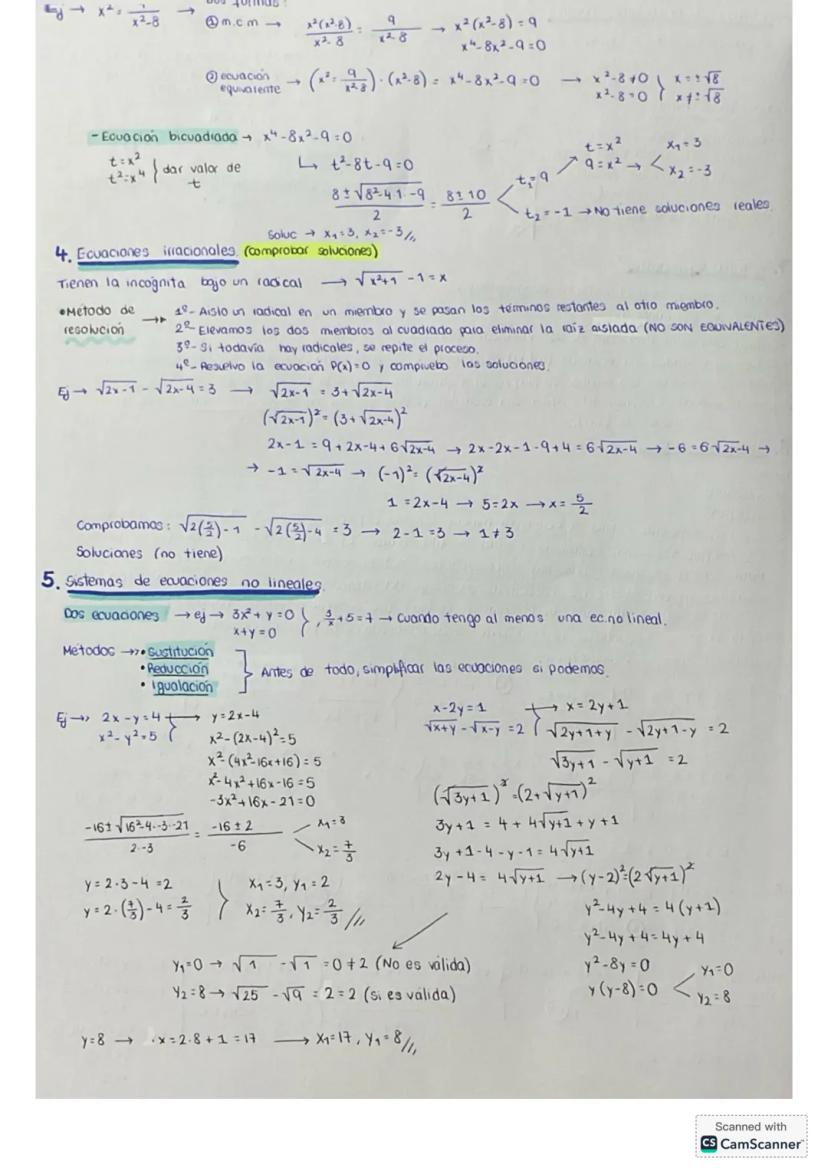 Ej → x² = 9/(x²-8) → Dos formas:
① m.c.m → x²(x²-8)/(x²-8) = 9/(x²-8) → x²(x²-8) = 9
x⁴-8x²-9=0
② ecuación equivalente → (x² = 9/(x²-8)) · (x²-8) = x⁴-8x²-9=0 → x²-8≠0 } x=±√8
x²-8=0 } x≠±√8
- Ecuación bicuadrada → x⁴-8x²-9=0
t=x²
t²=x⁴ } dar valor de t
↳ t²-8t-9=0
(8±√(8²-4·1·-9))/2 = (8±10)/2
t₁=9 t=x² 9=x² → x₁=3 x₂=-3
t₂=-1 → No tiene soluciones reales
Soluc → x₁=3, x₂=-3//,
4. Ecuaciones irracionales. (comprobar soluciones)
Tienen la incógnita bajo un radical → √(x²+1) -1=x
•Método de resolución →
1º- Aislo un radical en un miembro y se pasan los términos restantes al otro miembro.
2º- Elevamos los dos miembros al cuadrado para eliminar la raíz aislada (NO SON EQUIVALENTES)
3º- Si todavía hay radicales, se repite el proceso.
4º- Resuelvo la ecuación P(x)=0 y compruebo las soluciones.
Ej → √(2x-1) - √(2x-4) = 3 → √(2x-1) = 3+√(2x-4)
(√(2x-1))² = (3+√(2x-4))²
2x-1 = 9+2x-4+6√(2x-4) → 2x-2x-1-9+4=6√(2x-4) → -6=6√(2x-4) →
→ -1=√(2x-4) → (-1)²=(√(2x-4))²
1=2x-4 → 5=2x → x=5/2
Comprobamos: √(2(5/2)-1) - √(2(5/2)-4) = 3 → 2-1=3 → 1≠3
Soluciones (no tiene)
5. Sistemas de ecuaciones no lineales.
Dos ecuaciones → ej → 3x²+y=0
x+y=0 } , 3/x+5=7 → Cuando tengo al menos una ec.no lineal.
Métodos →
• Sustitución
• Reducción
• Igualación
} Antes de todo, simplificar las ecuaciones si podemos.
Ej → 2x-y=4 → y=2x-4
x²-y²=5
x²-(2x-4)²=5
x²-(4x²-16x+16)=5
x²-4x²+16x-16=5
-3x²+16x-21=0
(-16±√(16²-4·-3·-21))/(2·-3) = (-16±2)/-6
x₁=3
x₂=7/3
y=2·3-4=2
y=2·(7/3)-4=2/3
x₁=3, y₁=2
x₂=7/3, y₂=2/3//,
x-2y=1 → x=2y+1
√(x+y) - √(x-y) = 2 } √(2y+1+y) - √(2y+1-y) = 2
√(3y+1) - √(y+1) = 2
(√(3y+1))²=(2+√(y+1))²
3y+1 = 4+4√(y+1)+y+1
3y+1-4-y-1=4√(y+1)
2y-4=4√(y+1) → (y-2)²=(2√(y+1))²
y²-4y+4=4(y+1)
y²-4y+4=4y+4
y²-8y=0
y(y-8)=0
y₁=0
y₂=8
y₁=0 → √1 -√1 =0≠2 (No es válida)
y₂=8 → √25 -√9 = 2=2 (Si es válida)
y=8 → x=2·8+1=17 → x₁=17, y₁=8//,
Scanned with
CS CamScanner